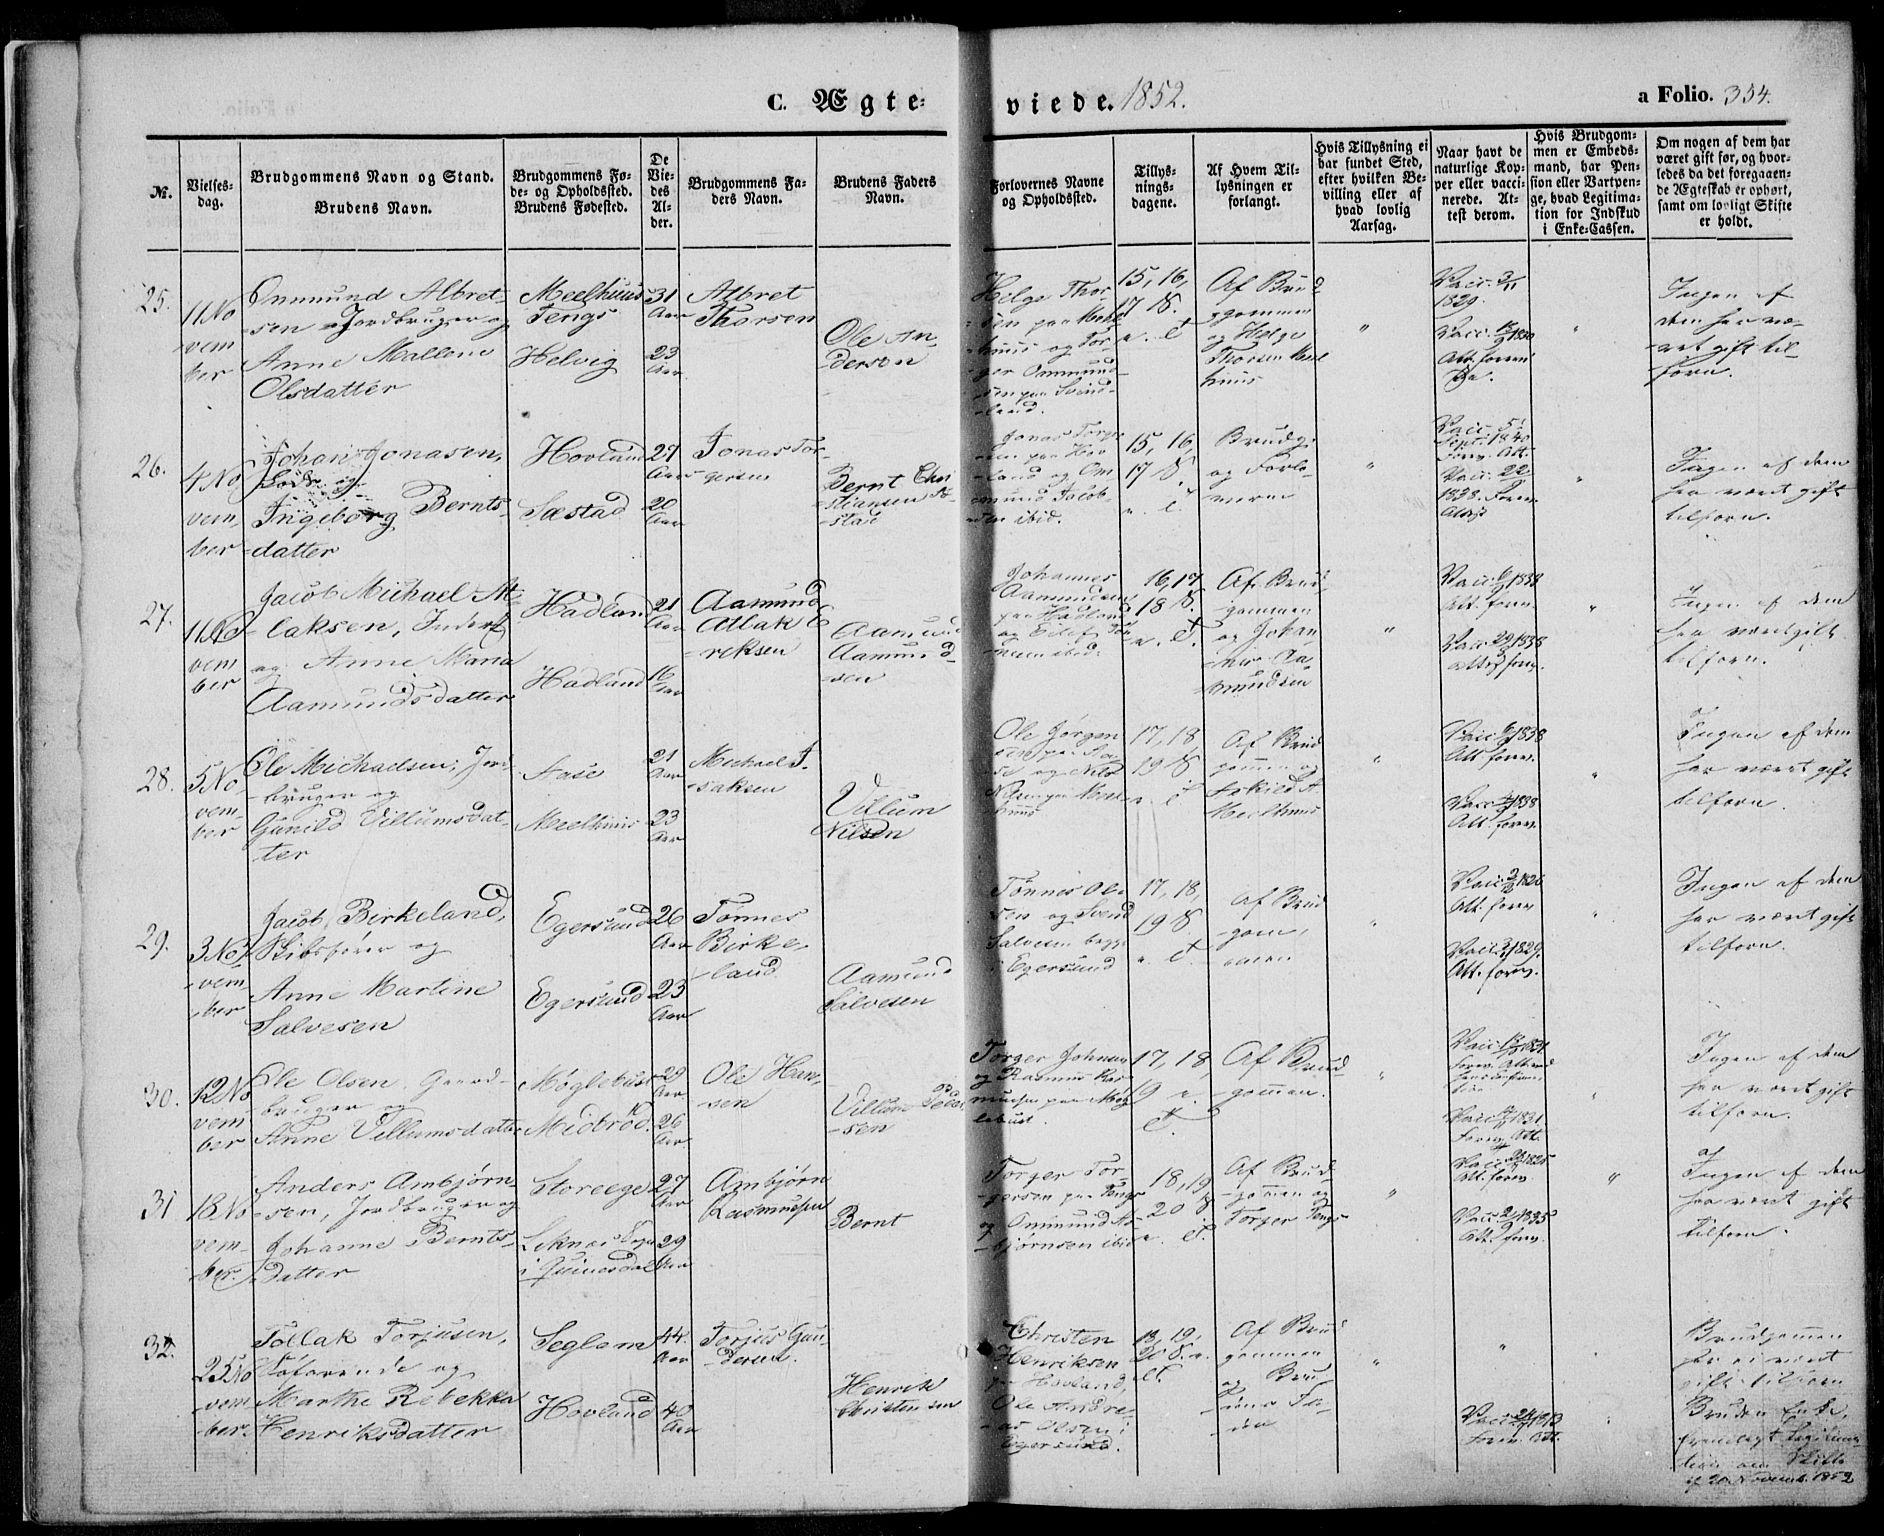 C. Ægte-
viede. 1852.
a Folio. 354.
№.
Vielses-
dag.
Brudgommens Navn og Stand.
Brudens Navn.
Brudgommens Fø-
de- og Opholdssted.
Brudens Fødested.
De
Vie-
des
Al-
der.
Brudgommens Fa-
ders Navn.
Brudens Faders
Navn.
Forlovernes Navne
og Opholdssted.
Tillys-
nings-
dagene.
Af Hvem Til-
lysningen er
forlangt.
Hvis Tillysning ei
har fundet Sted,
efter hvilken Be-
villing eller af
hvad lovlig
Aarsag.
Naar havt de
naturlige Kop-
per eller vacci-
nerede. At-
test derom.
Hvis Brudgom-
men er Embeds-
mand, har Pen-
sion eller Vartpen-
ge, hvad Legitima-
tion for Indskud
i Enke-Cassen.
Om nogen af dem har
været gift før, og hvor-
ledes da det foregaaen-
de Ægteskab er ophørt,
samt om lovligt Skifte
er holdt.
25.
11 No
vem
ber
Ommund Albret
sen Jordbruger og
Anne Mallene
Olsdatter
Meelhuus
Tengs
Helvig
31
Aar
23
Aar
Albret
Thorsen
Ole An-
dersen
Helge Thor-
sen paa Meel
huus og Tor
ger Ommund
sen paa Svind-
land.
15, 16,
17 S.
e. T
Af Brud
ggommen
og Helge
Thorsen Meel
huus
"
Vacc. 3/11
1829.
"
Ingen af
dem har væ-
ret gift til-
forn.
26.
4 No
vem-
ber
Johan Jonasen,
Lods og
Ingeborg Bernts-
datter
Hovland
Sæstad
27
Aar
20
Aar
Jonas Tor-
gersen
Bernt Chri
stiansen Sæ-
stad
Jonas Torger
sen paa Hov
land og Om
mund Jacob-
sen ibid.
15, 16,
17 S.
e. T.
Brudg.
og Forlo-
verne
"
Vacc. 5
Sept. 1840
Forev. Att.
Vacc. 22
1838. Forev.
"
Ingen af dem
har været gift
tilforn.
27.
11 No
vem
ber
Jacob Michael At-
laksen, Inderst
og Anne Maria
Aamundsdatter
Hadland
Hadland
21
Aar
16
Aar
Aamund
Atlak E
reksen
Aamund
Aamund-
sen
Johannes
Aamundsen
paa Hadland
og Elef Tøn
nesen ibid.
16, 17
18 S.
e. T.
Af Brud
gommen
og Johan-
nes Aa-
mundsen
"
Att. forev.
"
Ingen af dem
har været gift
tilforn.
28.
5 No
vem-
ber
Ole Michaelsen, Jord-
bruger og
Gunild Villumsdat-
ter
Aase
Meelhuus
21
Aar
23
Aar
Michael I-
saksen
Villum
Nilsen
Ole Jørgen
sen paa Aa-
se og Nils
Nilsen paa Meel
huus
17, 18
19 S
e. T
Af Brud
gommen og
Eskild A
Meelhuus
"
Att. forev.
Att. forev.
"
Ingen af dem
har været gift
tilforn.
29.
3 No
vem-
ber
Jacob Birkeland,
Skibsfører og
Anne Martine
Salvesen
Egersund
Egersund
26
Aar
23
Aar
Tønnes
Birke-
land.
Aamund
Salvesen
Tønnes Ole
sen og Svend
Salvesen begge
i Egersund
17, 18,
19 S
e. T
Af Brud
gom-
men
"
Att. forev
Att. forev.
"
Ingen af dem
har været gift
tilforn.
30.
12 No
vem
ber
Ole Olsen, Gaard-
bruger og
Anne Villumsdatter
Møglebust
Midbrød.
29
Aar
26
Aar
Ole Han-
sen
Villum Peder
sen
Torger Johnsen
og Rasmus Ras-
musen paa Møg
lebust.
17, 18,
19 e.
T.
Af Brud-
gommen.
"
Forev. Att.
"
Ingen af dem
har været gift
tilforn.
31
18 No
vem-
ber.
Anders Ambjørn-
sen, Jordbruger og
Johanne Bernts-
datter
Storeege
Leknæs Sogn
i Quinesdal
27
Aar
29
Aar
Ambjørn
Rasmussen
Bernt
Torger Tor-
gersen paa Tengs
og Ommund As-
bjørnsen ibid
18, 19
20 S
e. T.
Af Brud-
gommen og
Torger Tengs
"
Att. forev.
Att. forev.
"
Ingen af dem
har været gift
tilforn.
32.
25 No
vem-
ber.
Tollak Torjusen,
Søfarende og
Marthe Rebekka
Henriksdatter
Seglem
Hovland
44.
Aar
40
Aar
Torjus Gun-
dersen.
Henrik
Christensen
Christen
Henriksen
paa Hovland,
Ole Andre-
as Olsen i
Egersund.
18, 19,
20 S. e.
T.
Af Brud
gommen
og Bru-
dens Fa-
der
"
"
Forev. Att.
Brudgommen
har ei været
gift tilforn
Bruden Enke,
fremlagt Legitima-
tion om Skifte
af 20 Novemb. 1852